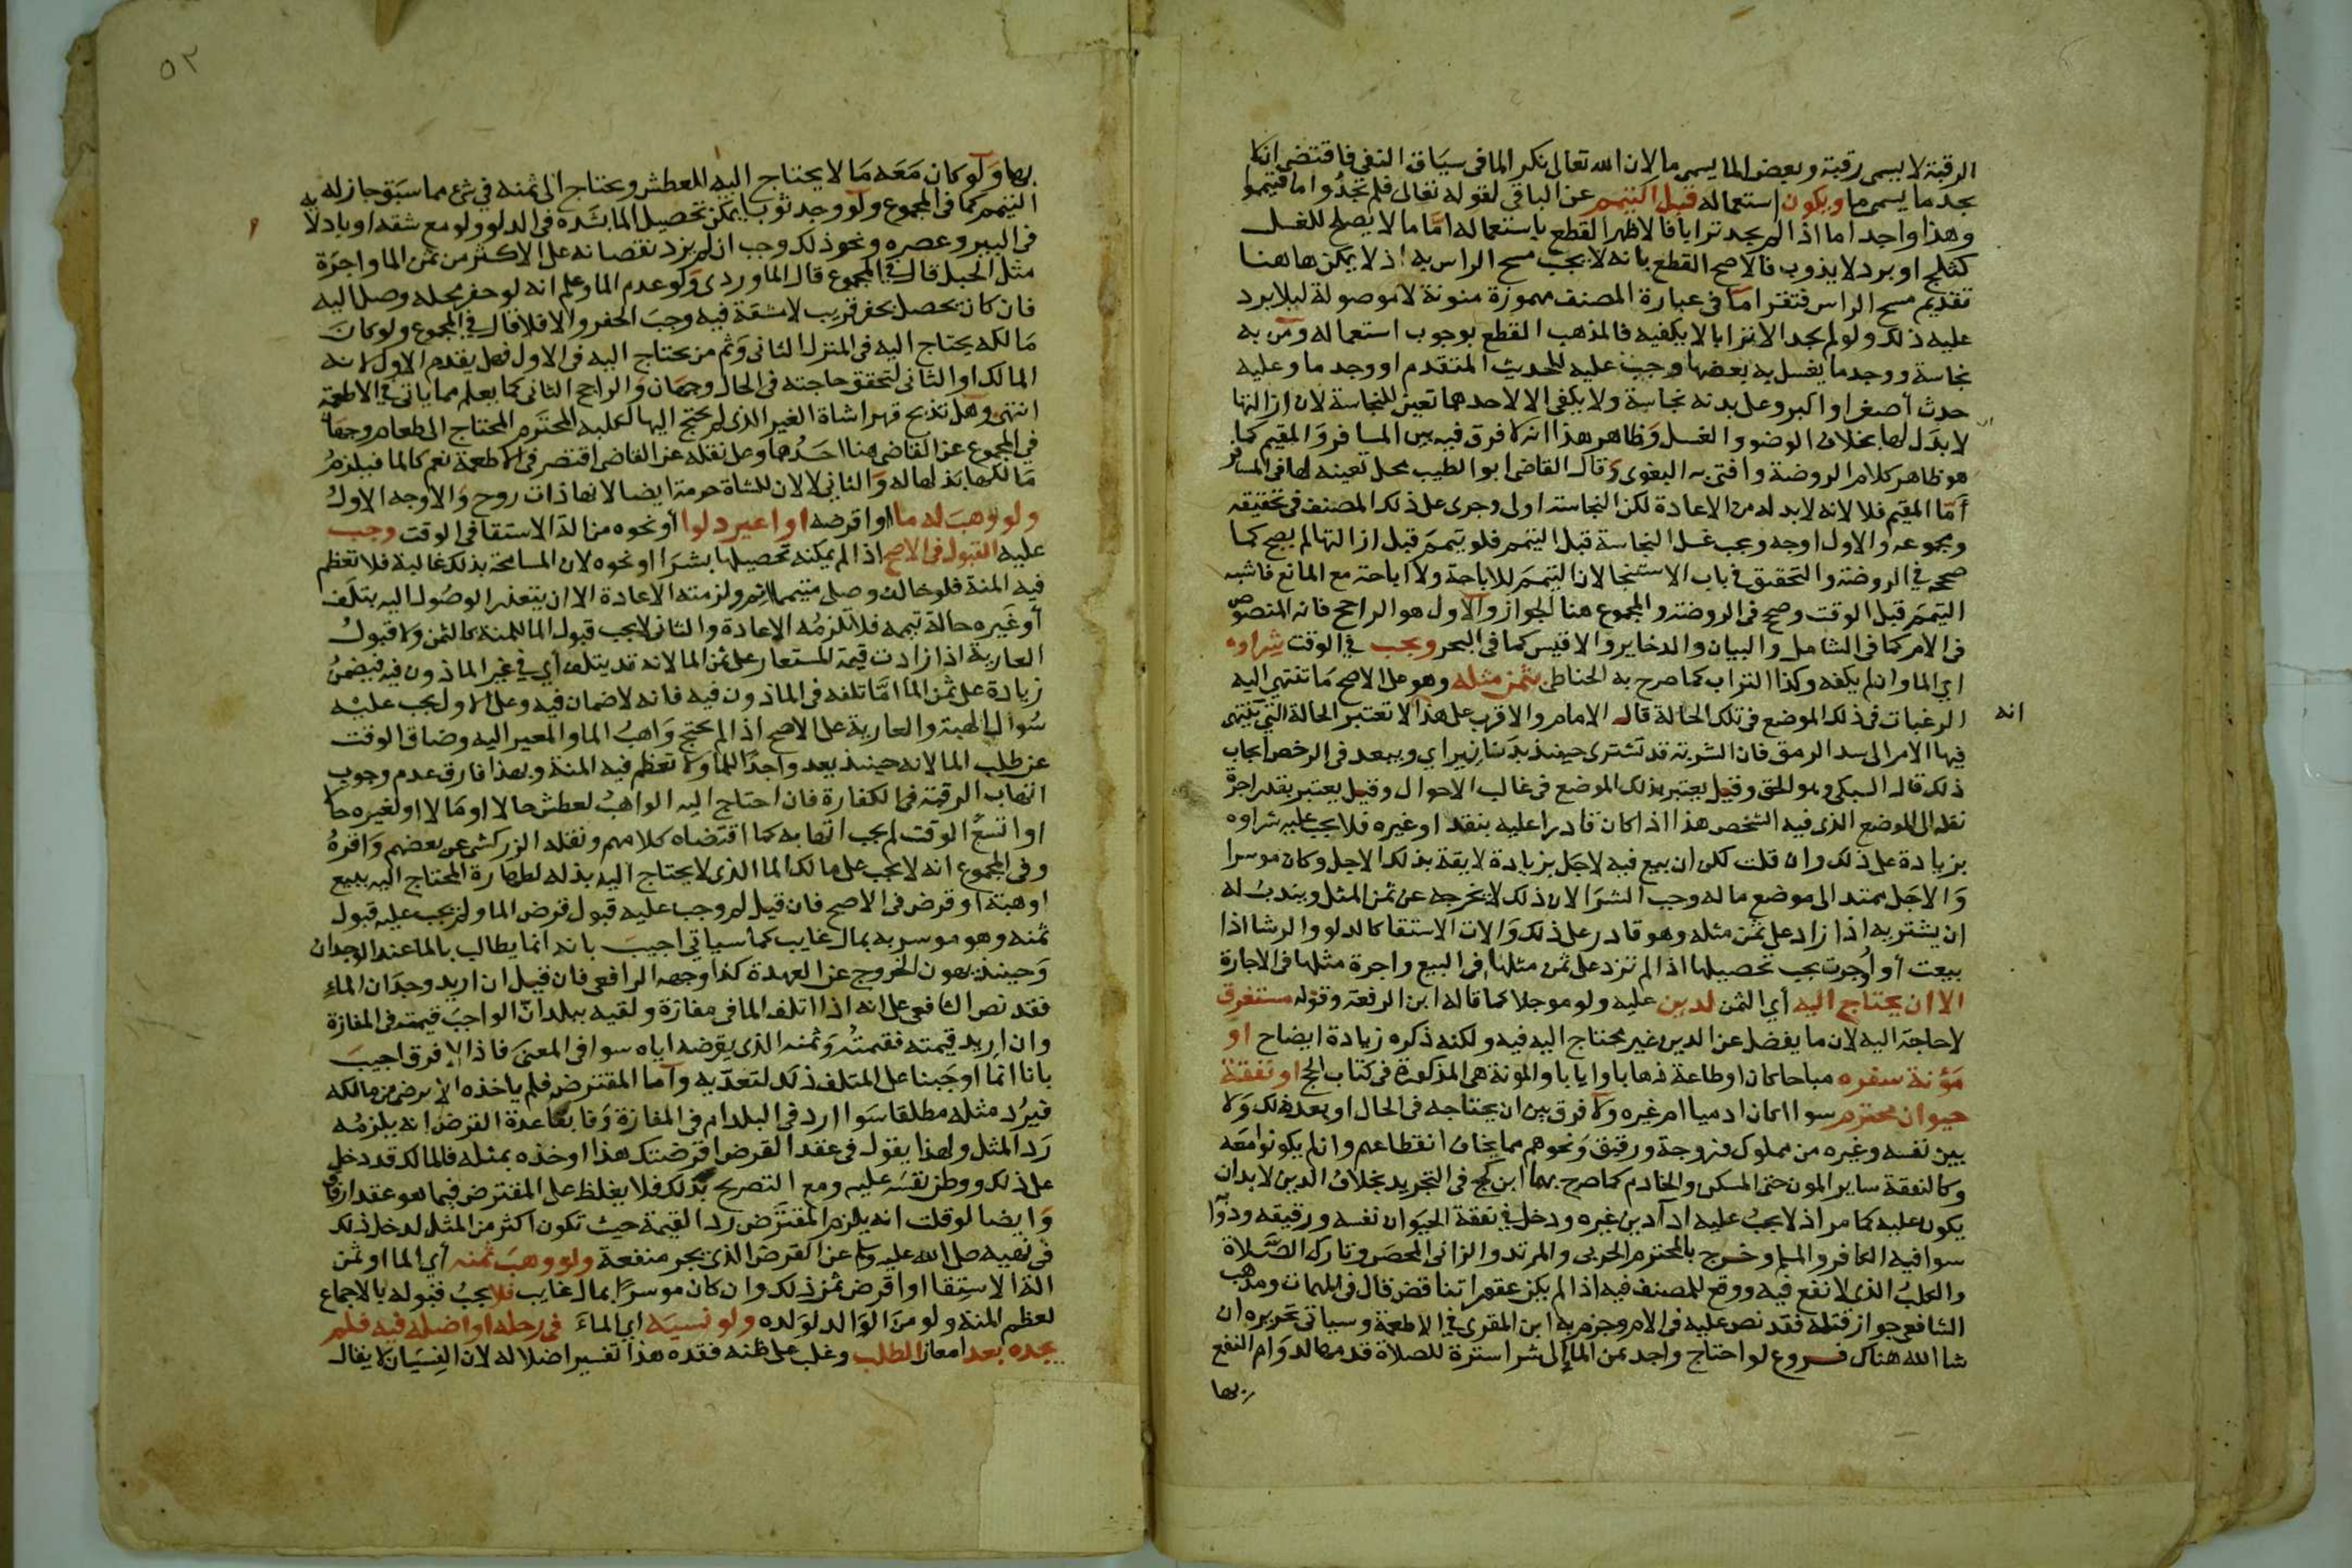 الرقبة لا يسمى رقبة وبعض الما يسمى ما لان الله تعالى نكر الما فى سياق النفى فاقتضى ان لا
يجد ما يسمى ما ويكون استعماله قبل التيمم عن الباقى لقوله تعالى فلم تجدوا ما فتيمموا
وهذا واجد اما اذا لم يجد ترابا فالاظهر القطع باستعماله امّا ما لا يصلح للغسل
كثلج او برد لا يذوب فالاصح القطع بانه لا يجب مسح الراس به اذ لا يمكن هاهنا
تقديم مسح الراس فتقرا ما فى عبارة المصنف مهموزة منونة لا موصولة ليلا يرد
عليه ذلك ولو لم يجد الا ترابا لا يكفيه فالمذهب القطع بوجوب استعماله ومن به
نجاسة ووجد ما يغسل به بعضها وجب عليه للحديث المتقدم او وجد ما وعليه
حدث أصغر او اكبر وعلى بدنه نجاسة ولا يكفى الا لاحدهما تعين للنجاسة لان ازالتها
لا بدَل لها بخلاف الوضوو الغسل وظاهر هذا انه لا فرق فيه بين المسافر والمقيم كما
هو ظاهر كلام الروضة وافتى به البغوى وقال القاضى ابو الطيب محل تعينه لها فى المسافر
أمّا المقيم فلا لانه لا بد له من الاعادة لكن النجاسة اولى وجرى على ذلك المصنف فى تحقيقه
ومجموعه والاول اوجه ويجب غسل النجاسة قبل التيمم فلو تيمم قبل ازالتها لم يصح كما
صححه فى الروضة والتحقيق فى باب الاستنجا لان التيمم للاباحة ولا اباحة مع المانع فاشبه
التيمم قبل الوقت وصحح فى الروضة والمجموع هنا الجواز والاول هو الراجح فانه المنصوص
فى الام كما فى الشامل والبيان والدخاير والاقيس كما فى البحر ويجب فى الوقت شراوه
اي الما وان لم يكفه وكذا التراب كما صرح به الحناطى بثمن مثله وهو على الاصح ما تنتهى اليه
الرغبات فى ذلك الموضع فى تلك الحالة قاله الامام والاقرب على هذا انه لا تعتبر الحالة التى ينتهى
فيها الامر الى سد الرمق فان الشربة قد تشترى حينئذ بدنانير اي ويبعد فى الرخص ايجاب
ذلك قال السبكى وهو الحق وقيل يعتبر بذلك الموضع فى غالب الاحوال وقيل يعتبر بقدر اجرة
نقله الى الموضع الذى فيه الشخص هذا اذا كان قادرا عليه بنقد او غيره فلا يجب عليه شراوه
بزيادة على ذلك وان قلت لكن ان بيع فيه لاجل بزيادة لايقة بذلك الاجل وكان موسرا
والاجَل يمتد الى موضع ماله وجب الشرا لان ذلك لا يخرجه عن ثمن المثل ويندب له
ان يشتريه اذا زاد على ثمن مثله وهو قادر على ذلك وَالات الاستقا كالدلو والرشا اذا
بيعت أو اُوجرت يجب تحصيلها اذا لم تزد على ثمن مثلها فى البيع واجرة مثلها فى الاجارة
الا ان يحتاج اليه أي الثمن لدين عليه ولو موجلا كما قاله ابن الرفعة وقوله مستغرق
لا حاجة اليه لان ما يفضل عن الدين غير محتاج اليه فيه ولكنه ذكره زيادة ايضاح او
مَؤنة سفره مباحا كان او طاعة ذهابا وايابا والمونة هى المذكورة فى كتاب الحج او نفقة
حيوان محترم سوا اكان ادميا ام غيره ولا فرق بين ان يحتاجه فى الحال او بعد ذلك وَلا
بين نفسه وغيره من مملوك وزوجة ورقيق ونحوهم مما يخاف انقطاعهم وان لم يكونوا معه
وكالنفقة ساير المون حتى المسكن والخادم كما صرح بهما ابن كج فى التجريد بخلاف الدين لا بد ان
يكون عليه كما مر اذ لا يجبُ عليه ادآ دين غيره ودخل فى نفقة الحيَوان نفسه ورقيقه ودوابه
سوا فيه الكافر والمسلم وخرج بالمحترم الحربى والمرتد والزانى المحصن وتارك الصَّلاة
والكلبُ الذى لا نفع فيه ووقع للمصنف فيه اذا لم يكن عقورا تناقض قال فى المهمات ومذهب
الشافعى جواز قتله فقد نص عليه فى الام وجزم به ابن المقرى فى الاطعمة وسياتى تحريره ان
شا الله هناك فــروع لو احتاج واجد ثمن الما الى شرا سترة للصلاة قدمها لدوَام النفع
بها
٥٢
بها ولو كان مَعَه مَا لا يحتاج اليه للعطش ويحتاج الى ثمنه فى شى مما سَبَق جاز له
التيمم كما فى المجموع ولو وجد ثوبا يمكن تحصيل الما بشده فى الدلو ولو مع شقه او بادلائه
فى البير وعصره ونحو ذلك وجب ان لم يزد نقصانه على الاكثر من ثمن الما واجرَة
مثل الحبل قال فى المجموع قال الماوردى وَلو عدم الما وعلم انه لو حفر محله وصل اليه
فان كان يحصل بحفر قريب لا مشقة فيه وجبَ الحفر والا فلا قال فى المجموع ولو كانَ
مَالكه يحتاج اليه فى المنزل الثانى وَثم من يحتاج اليه فى الاول فهل يقدم الاول لانه
المالك او الثانى لتحقق حاجته فى الحال وجهان والراجح الثانى كما يعلم مما ياتى فى الاطعمة
انتهى وهل تذبح قهرا شاة الغير الذى لم يحتج اليها لكلبه المحترَم المحتاج الى طعام وجهان
فى المجموع عن القاضى هنا احَدُهما وعلى نقله عن القاضى اقتصر فى الاطعمة نعم كالما فيلزمُ
مَالكها بذلها له وَالثانى لا لان للشاة حرمة ايضا لانها ذات روح وَالاوجه الاولُ
ولو وُهبَ له ما او اقرضه او اعير دلوا أو نحوه من الة الاستقا فى الوقت وجب
عليه القبول فى الاصح اذا لم يمكنه تحصيلها بشرَا او نحوه لان المسامحة بذلك غالبة فلا تعظم
فيه المنة فلو خالف وصلى متيمما اثم ولزمته الاعادة الا ان يتعذر الوصُول اليه بتلَف
أو غَيره حالة تيممه فلا تلزمُه الاعادة والثانى لا يجب قبول الما للمنة كالثمن ولا قبولُ
العارية اذا زادت قيمة المستعار على ثمن الما لانه قد يتلف أي فى غير الماذون فيه فيضمنُ
زيادة على ثمن الما امّا تلفه فى الماذون فيه فانه لا ضمان فيه وعلى الاول يجب عليْه
سُوال الهبة والعارية على الاصح اذا لم يحتج وَاهبُ الما والمعير اليه وضاق الوقت
عن طلب الما لانه حينئذ يعد واجدًا للما ولا تعظم فيه المنة وبهذا فارق عدم وجوب
اتهاب الرقبة فى الكفارة فان احتاج اليه الواهبُ لعطش حالا او مَالا او لغيره حالا
او اتسعَ الوقت لم يجب اتهابه كما اقتضاه كلامهم ونقله الزركشى عن بعضهم وَاقرهُ
وفى المجموع انه لا يجب على مالك الما الذى لا يحتاج اليه بذله لطهارة المحتاج اليه ببيع
او هبة او قرض فى الاصح فان قيل لم وجب عليه قبول قرض الما ولم يجب عليه قبول
ثمنه وهو موسر به بمال غايب كما سياتى اجيبَ بانه انما يطالب بالما عند الوجدان
وَحينئذ يهون الخروج عن العهدة كذا وجهه الرافعى فان قيل ان اريد وجدَان الماءِ
فقد نص الشافعى على انه اذا اتلف الما فى مفازة ولقيه ببلد انّ الواجبَ قيمته فى المفازة
وان اريد قيمته فقيمتُه وَثمنه الذى يقرضه اياه سوا فى المعنى فاذا لا فرق اجيبَ
بانا انما اوجَبنا على المتلف ذلك لتعدّيه وأما المقترض فلم ياخذه الا برضى من مالكه
فيرُد مثله مطلقا سَوا ارد فى البلد ام فى المفازة وَفا بقاعدة القرض انه يلزمُه
رَد المثل ولهذا يقول فى عقد القرض اقرضتك هذا او خذه بمثله فالمالك قد دخل
على ذلك ووطن نفسَه عليه ومع التصريح بذلك فلا يغلظ على المقترض فيما هو عقد ارفاق
وَايضا لو قلت انه يلزم المقترَض رد القيمة حيث تكون اكثر من المثل لدخل ذلك
فى نهيه صلى الله عليه وسلم عن القرض الذى يجر منفعة ولو وهبَ ثمنه أي الما او ثمن
الة الاستقا او اقرض ثمن ذلك وان كان موسرًا بمال غايب فلا يجبُ قبوله بالاجماع
لعظم المنة ولو منَ الوَالد لوَلده ولو نسيَه اي الماءَ فى رحله او اضله فيه فلم
يجده بعد امعان الطلب وغلب على ظنه فقده هذا تفسير اضلاله لان النسيَان لا يقال